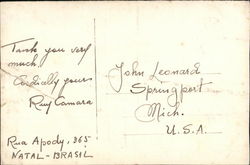 Tank you very
much.
Cordially yours
Ruy Camara
Rua Apody, 365
NATAL - BRASIL
John Leonard
Springport
Mich.
U.S.A.